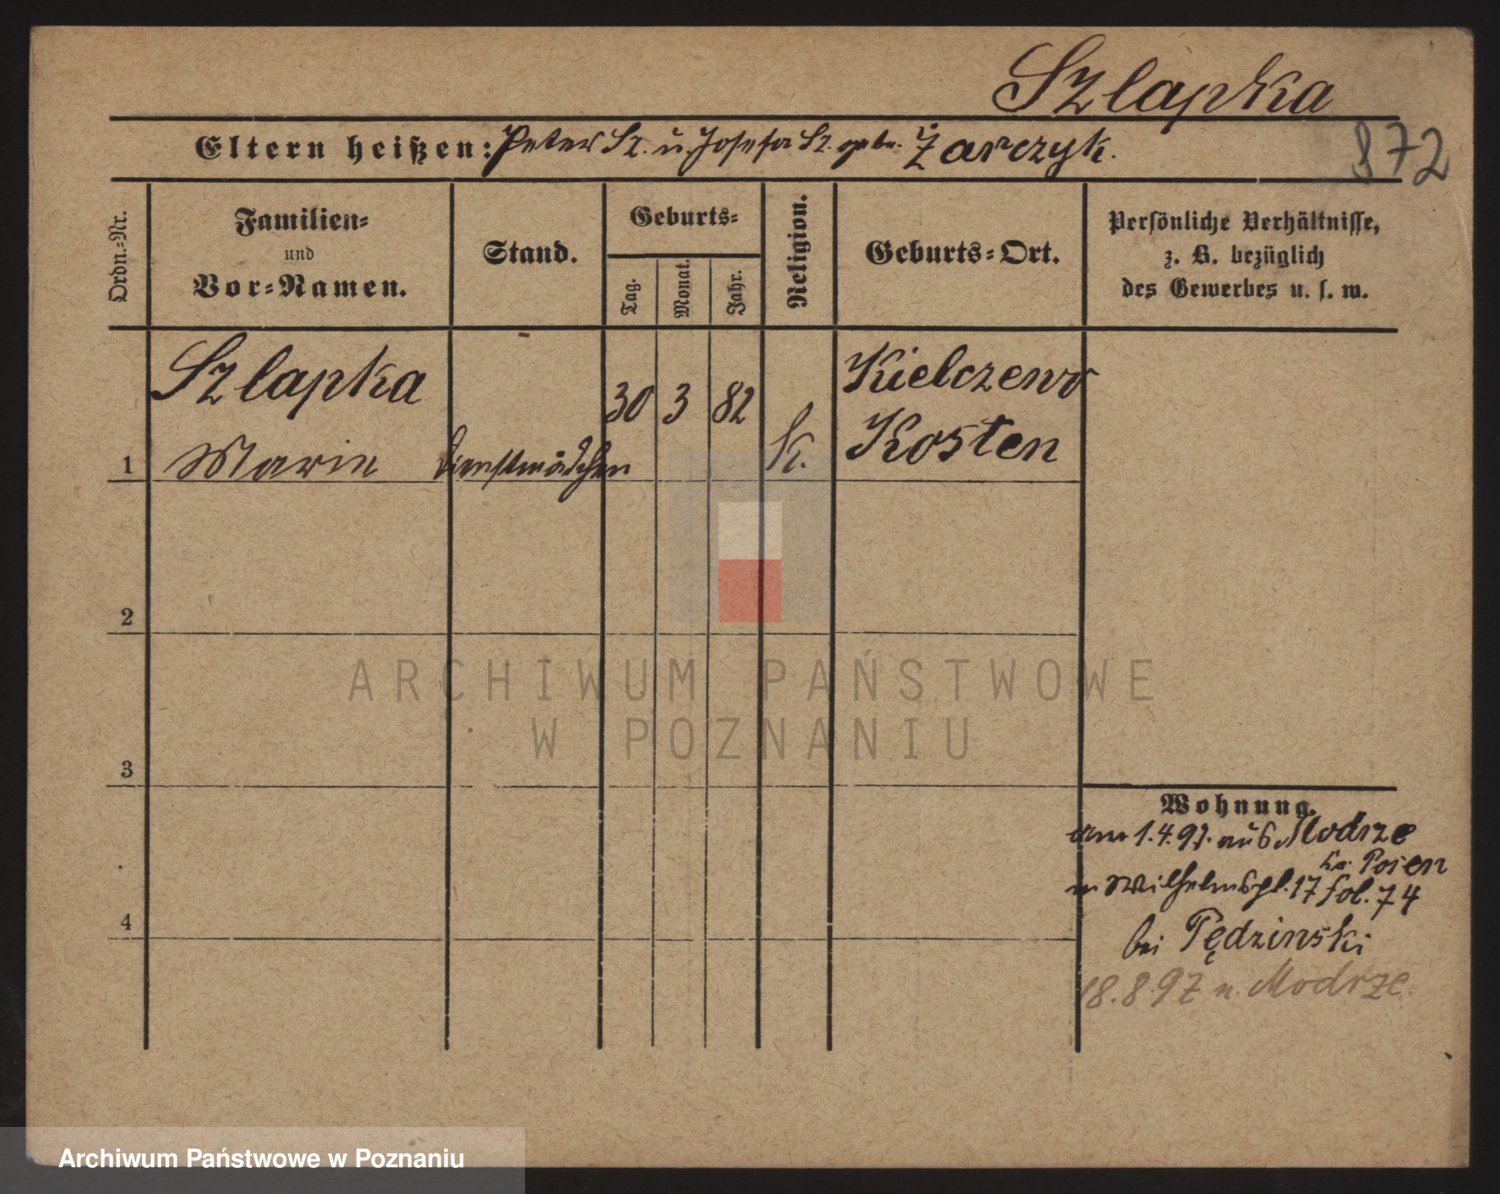 Szlapka
Eltern heißen: Peter Sz. u. Josefa Sz. geb. Żarczyk.
872
Ordn.-Nr.
Familien-
und
Vor-Namen.
Stand.
Geburts-
Tag.
Monat.
Jahr.
Religion.
Geburts-Ort.
Persönliche Verhältnisse,
z. B. bezüglich
des Gewerbes u. s. w.
Szlapka
30 3 82
Kielczewo
1 Marie Dienstmädchen
k.
Kosten
2
3
4
Wohnung.
am 1.4.97. aus Modrze
Kr. Posen
n Wilhelmspl. 17 fol. 74
bei Pędzinski
18.8.97 n. Modrze.
ARCHIWUM PAŃSTWOWE
W POZNANIU
Archiwum Państwowe w Poznaniu